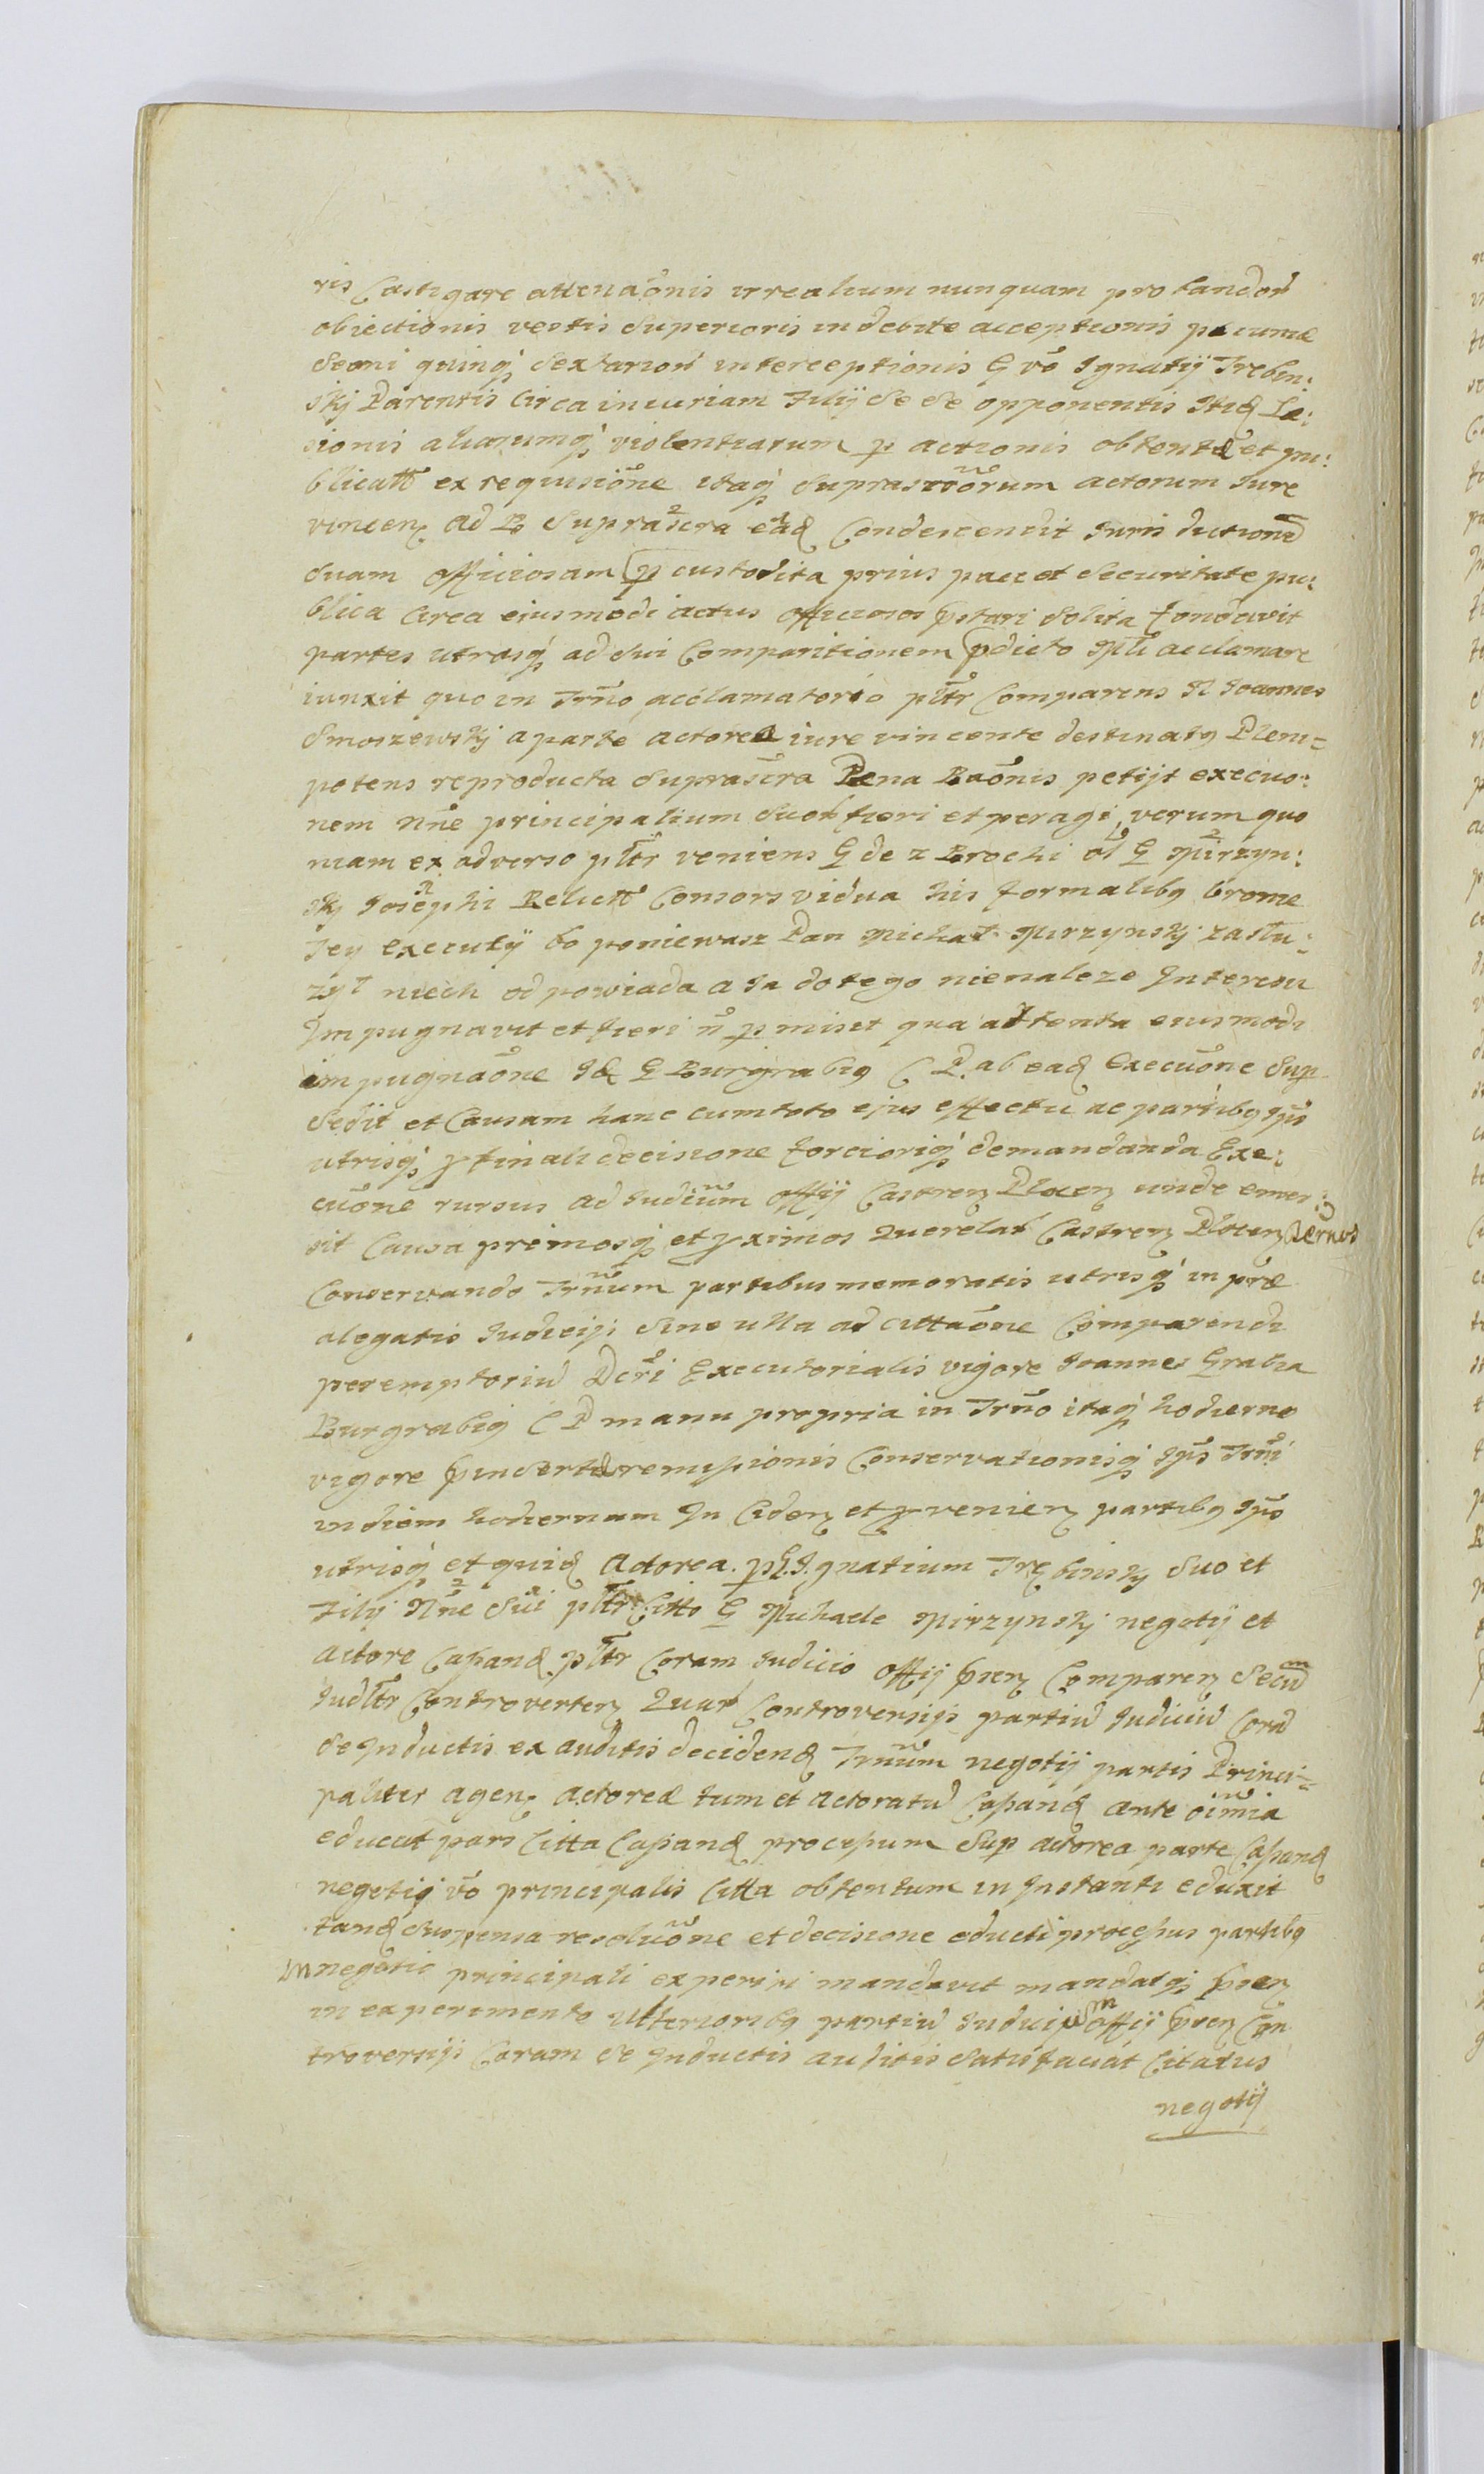 ris Castigare attenaõnis irrealium nunquam probandoꝝ
obiectionis vestis Superioris indebite acceptionis pecuniæ
Seoni quinqꝫ Sextarioꝝ interceptionis G vo Ignatij Trebin:
skj Parentis Circa iniuriam Filij Se Se opponentis Itid Læ:
sionis aliarumqꝫ violentiarum p actionis obtentæ et pu:
blicatt ex requisiõne itaqꝫ Suprascrõrum actorum Iure
vincen ad B Suprascra ead Condescendit Iuris dictionē
suam officiosam p custodita prius pace et Securitate pu:
blica Circa eiusmodi actus officiosos pstari Solita fundavit
partes utrasqꝫ ad Sui Comparitionem pdicto Mli acclamare
iunxit quo in Trño acclamatorio pltr Comparens N Joannes
Smoszewskj a parte actorea iure vincente destinatꝰ Pleni=
potens reproducta Suprascra Pena Baõnis petijt execuo:
nem Nñe principalium Suoꝝ fieri et peragi, verum quo
niam ex adverso pltr veniens G de z Brochi ol G Mirzyn:
skj Josephi Relictt Consors vidua his formalibꝰ bronie
Tey executij bo poniewasz Pan Michał Mirzynskj zasłu:
żył niech odpowiada a Ja do tego nienaleze Interesu
Impugnavit et fieri ñ pmisit qua attenta eiusmodi
impugnaõne Id G Burgrabiꝰ C P. ab ead Execuõne Sup
Sedit et Causam hanc cum toto ejus effectu ac partibꝰ Ipis
utrisqꝫ p finali decisione forcioriqꝫ demandanda Exe:
cuõne rursus ad Iudicium Offij Castren Plocen unde emer:
sit Causa primosqꝫ et pximos Querelaꝝ Castren Plocen Ternos
Conservando Trñum partibus memoratis utrisqꝫ in præ
alegatis Iudicijs Sine ulla ad cittaõne Comparendi
peremptoriū Dcri Executorialis vigore Joannes Grabia
Burgrabiꝰ C P manu propria in Trño itaqꝫ hodierno
vigore pinsertæ remissionis Conservationisqꝫ Ipis Trñi
in diem hodiernam In Ciden et pvenien partibꝰ Ipis
utrisqꝫ et quid actorea. p G. Ignatium Trębinskj Suo et
Filij Nñe Sui pltr Citto G Michaele Mirzynskj negotij et
actore Cassand pltr Coram Iudicio Offij pnen Comparen Secum
Iudltr Controverten Quaꝝ Controversijs partiū Iudiciū Corā
Se Inductis ex auditis deciden Trñum negotij partis Princi=
paliter agen actoreæ tum et actoratū Cassand ante oimnia
educat pars Citta Cassand processum Sup actorea parte Cassand
negotij vo principalis Citta obtentum in Instanti eduxit
tand Suspensa resoluõne et decisione educti processus partibꝰ
in negotio principali experiri mandavit mandatqꝫ pnen
in experimento Ulterioribꝰ partiū Iudicium Offij pnen Con
troversijs Coram Se Inductis auditis Satisfaciat Citatus
negotij